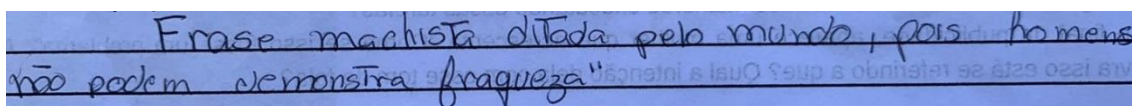 Frase machista ditada pelo mundo, pois homens
não podem demonstra fraqueza"